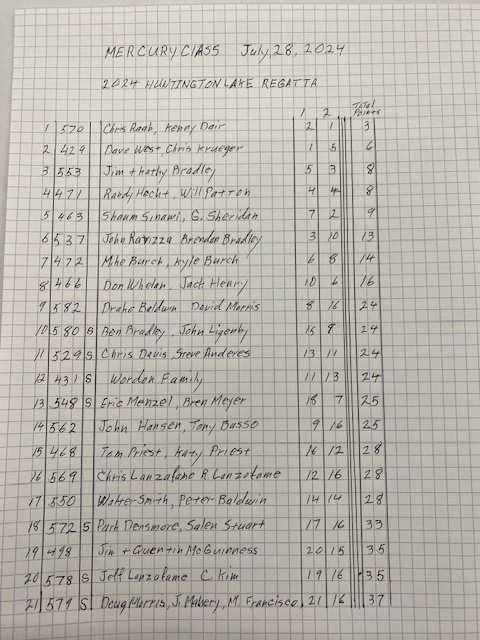 MERCURY CLASS July, 28, 2024
2024 HUNTINGTON LAKE REGATTA
1 2 Total Points
1 570 Chris Raab, Kenny Dair 2 1 3
2 429 Dave West, Chris Krueger 1 5 6
3 553 Jim + Kathy Bradley 5 3 8
4 471 Randy Hecht, Will Patton 4 4 8
5 463 Shaam Sinawi, G. Sheridan 7 2 9
6 537 John Ravizza Brendan Bradley 3 10 13
7 472 Mike Burch, Kyle Burch 6 8 14
8 466 Don Whelan, Jack Henry 10 6 16
9 582 Drake Baldwin David Morris 8 16 24
10 580 B Ben Bradley, John Ligenby 15 9 24
11 529 S Chris Davis, Steve Anderes 13 11 24
12 431 S Worden Family 11 13 24
13 548 S Eric Menzel, Bren Meyer 18 7 25
14 562 John Hansen, Tony Basso 9 16 25
15 468 Tom Priest, Katy Priest 16 12 28
16 569 Chris Lanzafame R. Lanzafame 12 16 28
17 550 Walter Smith, Peter Baldwin 14 14 28
18 572 S Park Densmore, Salen Stuart 17 16 33
19 498 Jim + Quentin McGuinness 20 15 35
20 578 S Jeff Lanzafame C. Kim 19 16 35
21 579 S Doug Morris, J. Mabery, M. Francisco 21 16 37